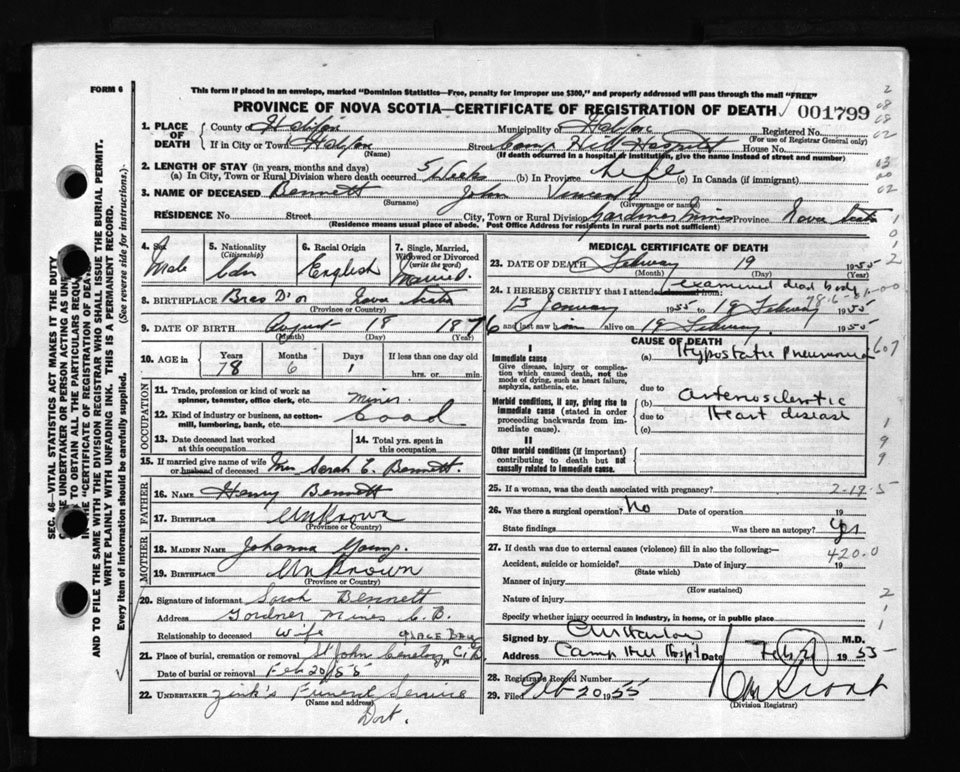 FORM 6
This form if placed in an envelope, marked "Dominion Statistics—Free, penalty for improper use $300," and properly addressed will pass through the mail "FREE"
PROVINCE OF NOVA SCOTIA—CERTIFICATE OF REGISTRATION OF DEATH 001799
1. PLACE OF DEATH County of Halifax Municipality of Halifax Registered No.
(For use of Registrar General only)
If in City or Town Halifax Street Camp Hill Hospital House No.
(Name) (If death occurred in a hospital or institution, give the name instead of street and number)
2. LENGTH OF STAY (in years, months and days)
(a) In City, Town or Rural Division where death occurred 5 Weeks (b) In Province Life (c) In Canada (if immigrant)
3. NAME OF DECEASED Bennett John Vincent
(Surname) (Given name or names)
RESIDENCE No. Street City, Town or Rural Division Gardiner Mines Province Nova Scotia
(Residence means usual place of abode. Post Office Address for residents in rural parts not sufficient)
4. Sex Male
5. Nationality (Citizenship) Cdn
6. Racial Origin English
7. Single, Married, Widowed or Divorced (write the word) Married
8. BIRTHPLACE Bras D'or Nova Scotia
(Province or Country)
9. DATE OF BIRTH August 18 1876
(Month) (Day)
10. AGE in Years 78 Months 6 Days 1 If less than one day old hrs. or min.
OCCUPATION
11. Trade, profession or kind of work as spinner, teamster, office clerk, etc. Miner
12. Kind of industry or business, as cotton-mill, lumbering, bank, etc. Coal
13. Date deceased last worked at this occupation
14. Total yrs. spent in this occupation
15. If married give name of wife or husband of deceased Mrs Sarah E. Bennett.
FATHER
16. NAME Henry Bennett
17. BIRTHPLACE Unknown
(Province or Country)
MOTHER
18. MAIDEN NAME Johanna Young.
19. BIRTHPLACE Unknown
(Province or Country)
20. Signature of informant Sarah Bennett
Address Gardner Mines C.B.
Relationship to deceased Wife
GLACE BAY
21. Place of burial, cremation or removal St John Cemetery C.B.
Date of burial or removal Feb 20/55
22. UNDERTAKER Zink's Funeral Service
(Name and address)
Dart.
MEDICAL CERTIFICATE OF DEATH
23. DATE OF DEATH February 19 1955
(Month) (Day) (Year)
24. I HEREBY CERTIFY that I attended deceased from: examined dead body
13 January 1955 to 19 February 1955
and last saw him alive on 19 February 1955
78-6-01-00
CAUSE OF DEATH
I
Immediate cause
Give disease, injury or complication which caused death, not the mode of dying, such as heart failure, asphyxia, asthenia, etc.
(a) Hypostatic Pneumonia
due to
Morbid conditions, if any, giving rise to immediate cause (stated in order proceeding backwards from immediate cause).
(b) arteriosclerotic
due to Heart disease
(c)
II
Other morbid conditions (if important) contributing to death but not causally related to immediate cause.
25. If a woman, was the death associated with pregnancy? 2-19-5
26. Was there a surgical operation? No Date of operation 19
State findings Was there an autopsy? Yes
27. If death was due to external causes (violence) fill in also the following:—
420.0
Accident, suicide or homicide? Date of injury 19
(State which)
Manner of injury
(How sustained)
Nature of injury
Specify whether injury occurred in industry, in home, or in public place
Signed by M.D.
Address Camp Hill Hospital Date Feb 1955
28. Registrars Record Number
29. Filed Feb 20 1955
(Division Registrar)
SEC. 46—VITAL STATISTICS ACT MAKES IT THE DUTY
UNDERTAKER OR PERSON ACTING AS
TO OBTAIN ALL THE PARTICULARS
"CERTIFICATE OF REGISTRATION OF DEATH"
AND TO FILE THE SAME WITH THE DIVISION REGISTRAR WHO SHALL ISSUE THE BURIAL PERMIT.
WRITE PLAINLY WITH UNFADING INK. THIS IS A PERMANENT RECORD.
Every item of information should be carefully supplied. (See reverse side for instructions.)